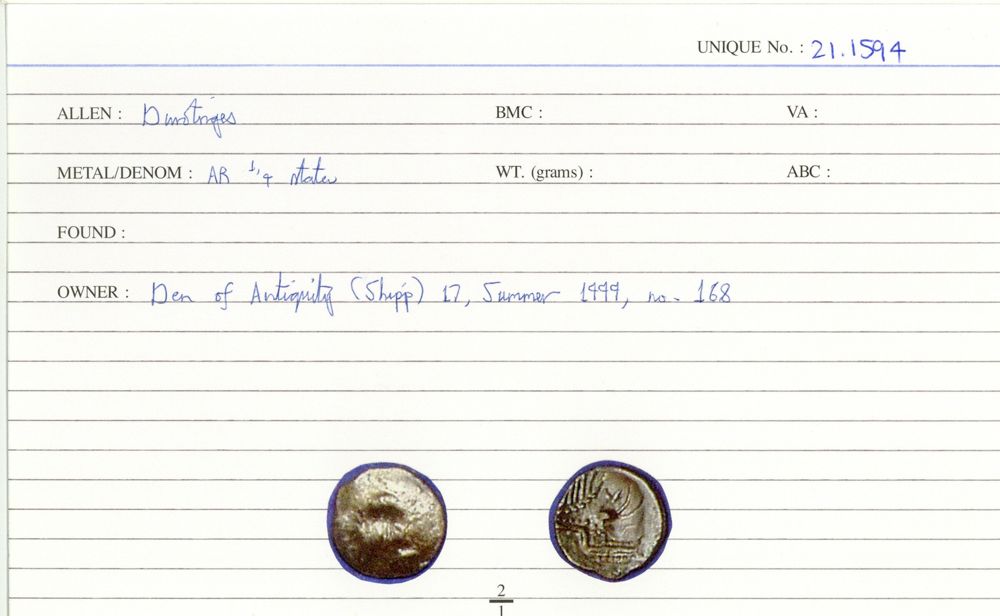 UNIQUE No. : 21.1594
ALLEN : Durotriges BMC : VA :
METAL/DENOM : AR 1/4 stater WT. (grams) : ABC :
FOUND :
OWNER : Den of Antiquity (Shipp) 17, Summer 1999, no. 168
2
1